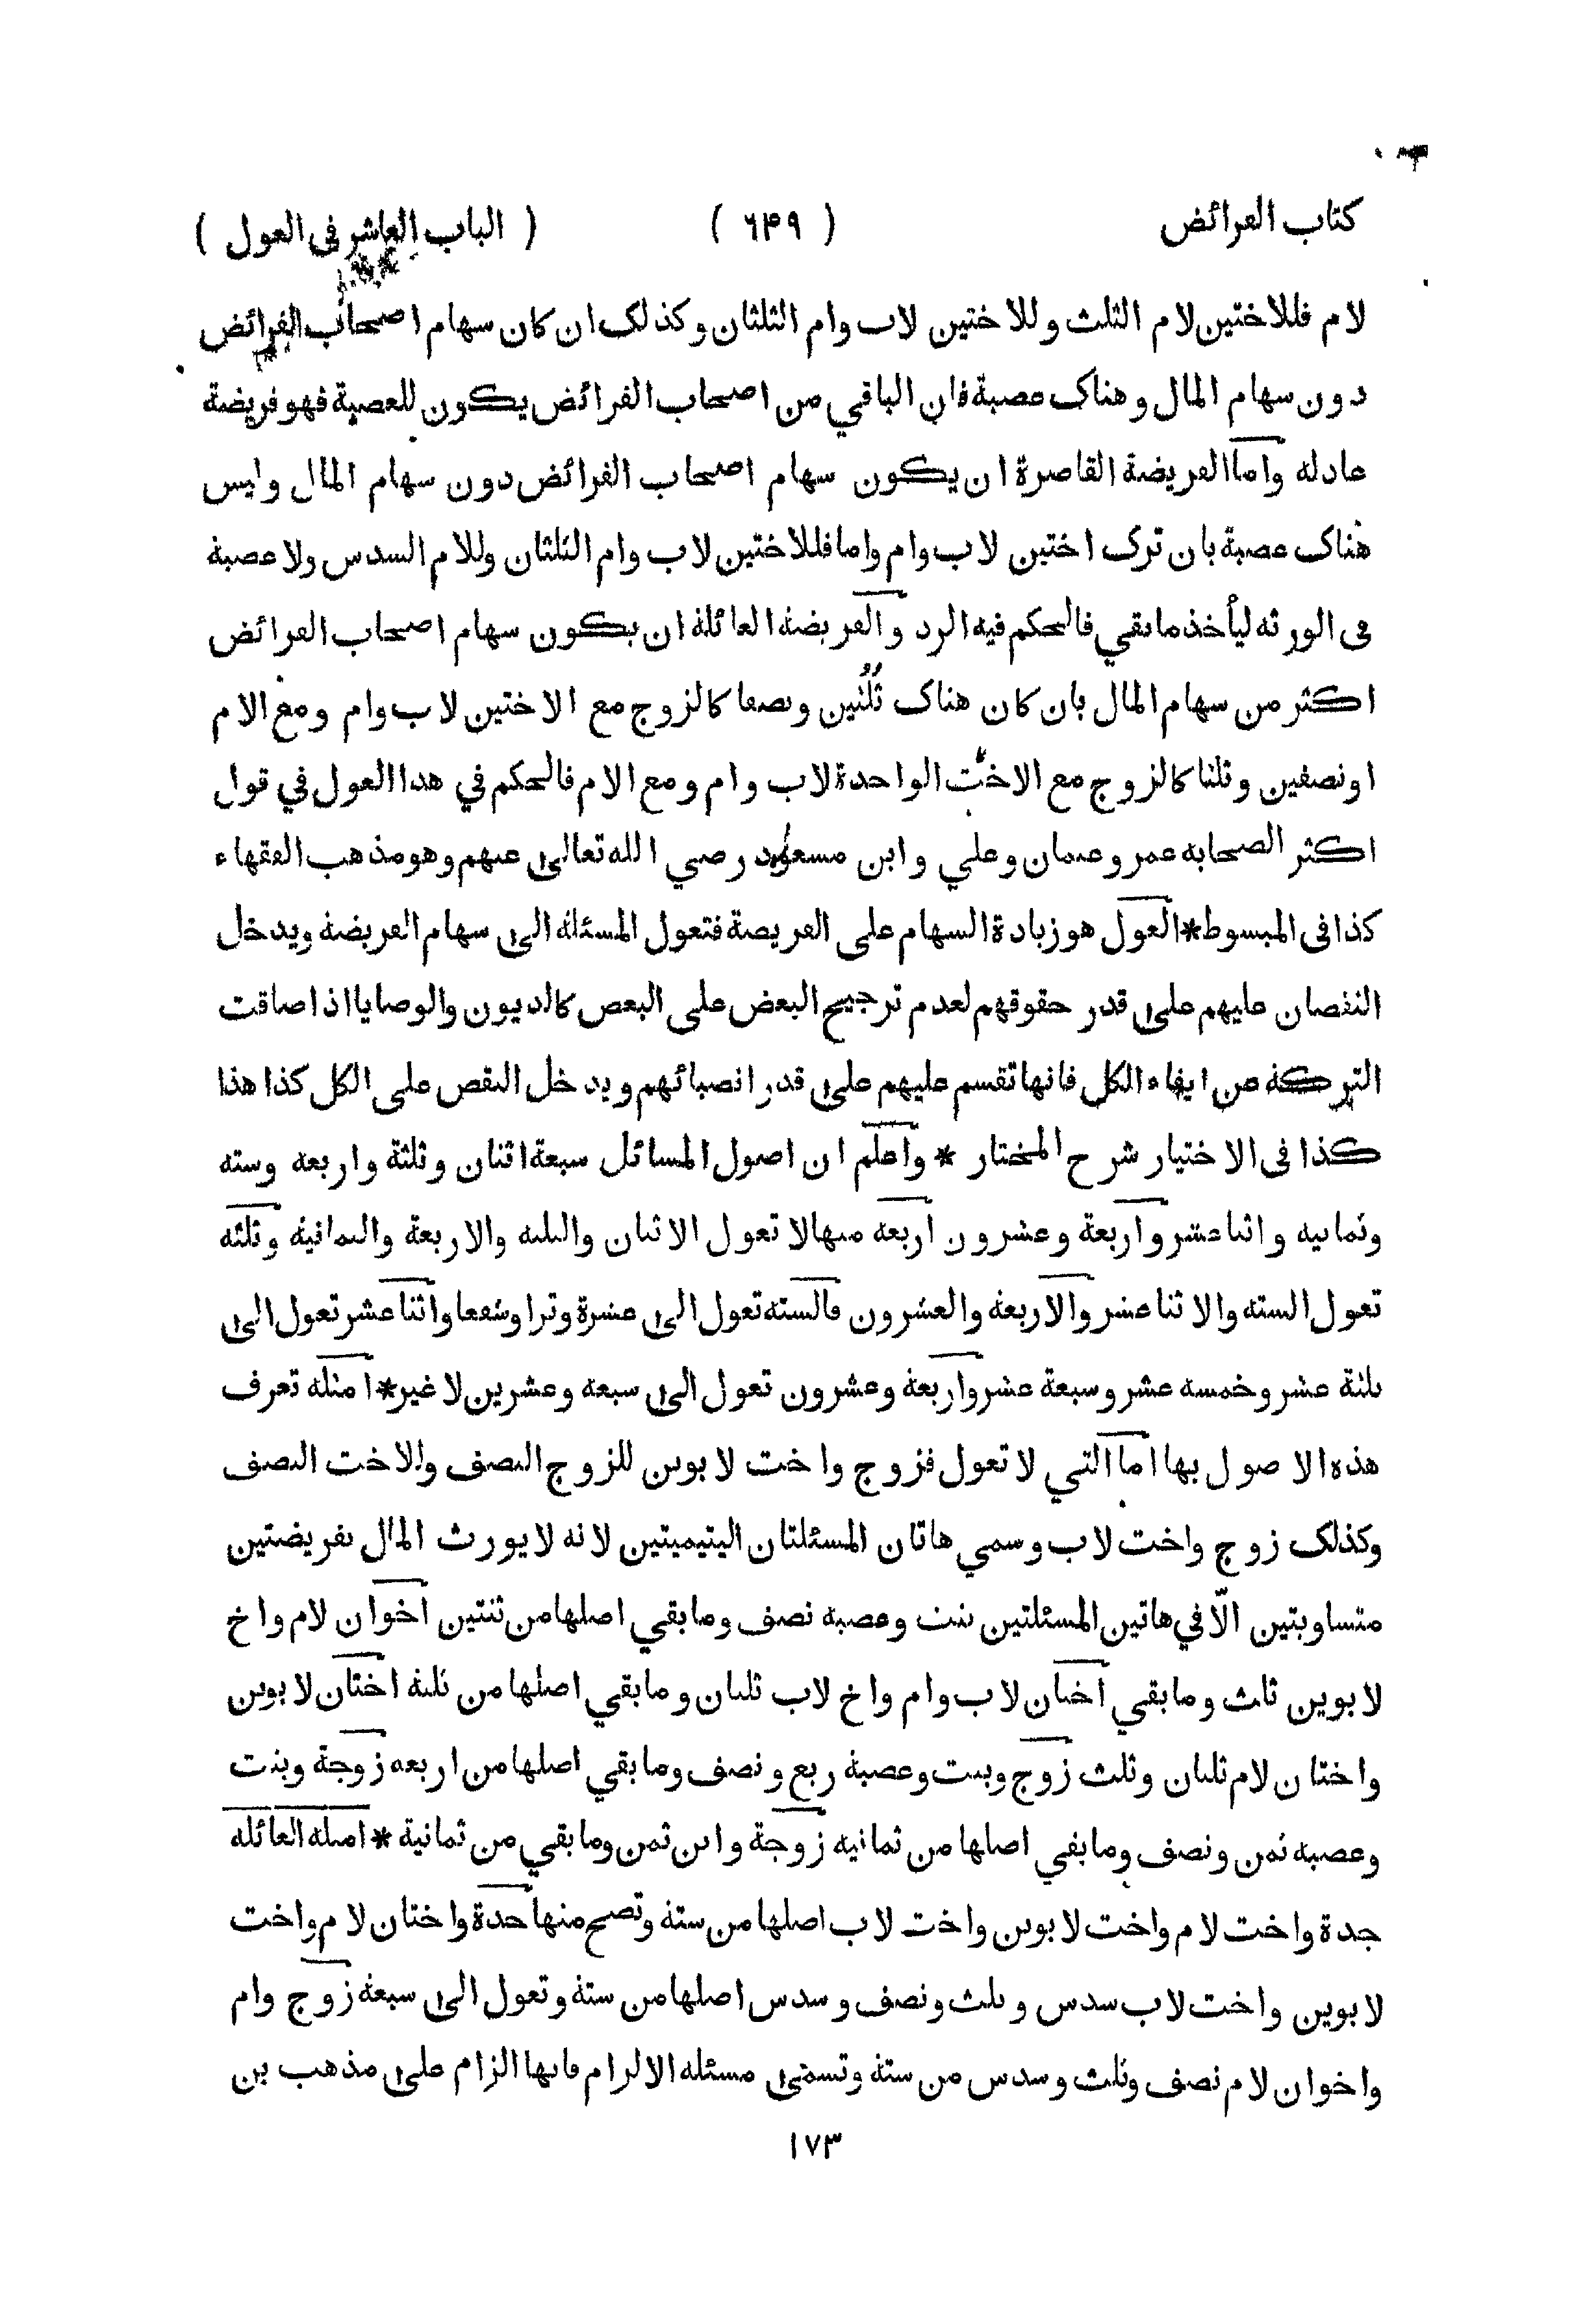 كتاب الفرائض ( ٦٤٩ ) ( الباب العاشر فى العول )
لام فللاختين لام الثلث وللاختين لاب وام الثلثان وكذلك ان كان سهام اصحاب الفرائض
دون سهام المال وهناك عصبة فان الباقي من اصحاب الفرائض يكون للعصبة فهو فريضة
عادلة واما الفريضة القاصرة ان يكون سهام اصحاب الفرائض دون سهام المال وليس
هناك عصبة بان ترك اختين لاب وام واما فللاختين لاب وام الثلثان وللام السدس ولا عصبة
فى الورثة ليأخذ ما بقي فالحكم فيه الرد والفريضة العائلة ان يكون سهام اصحاب الفرائض
اكثر من سهام المال بان كان هناك ثُلُثين ونصفا كالزوج مع الاختين لاب وام ومع الام
او نصفين وثلثا كالزوج مع الاخت الواحدة لاب وام ومع الام فالحكم في هذا العول في قول
اكثر الصحابة عمر وعثمان وعلي وابن مسعود رضي الله تعالى عنهم وهو مذهب الفقهاء
كذا فى المبسوط * العول هو زيادة السهام على الفريضة فتعول المسئلة الى سهام الفريضة ويدخل
النقصان عليهم على قدر حقوقهم لعدم ترجيح البعض على البعض كالديون والوصايا اذا ضاقت
التركة عن ايفاء الكل فانها تقسم عليهم على قدر انصبائهم ويدخل النقص على الكل كذا هذا
كذا فى الاختيار شرح المختار * واعلم ان اصول المسائل سبعة اثنان وثلثة واربعة وستة
وثمانية واثنا عشر واربعة وعشرون اربعة منها لا تعول الاثنان والثلثة والاربعة والثمانية وثلثة
تعول الستة والاثنا عشر والاربعة والعشرون فالستة تعول الى عشرة وترا وشفعا واثنا عشر تعول الى
ثلثة عشر وخمسة عشر وسبعة عشر واربعة وعشرون تعول الى سبعة وعشرين لا غير * امثلة تعرف
هذه الاصول بها اما التي لا تعول فزوج واخت لابوين للزوج النصف وللاخت النصف
وكذلك زوج واخت لاب وسمي هاتان المسئلتان اليتيميتين لانه لا يورث المال بفريضتين
متساويتين الّا في هاتين المسئلتين بنت وعصبة نصف وما بقي اصلها من ثنتين اخوان لام واخ
لابوين ثلث وما بقي اختان لاب وام واخ لاب ثلثان وما بقي اصلها من ثلثة اختان لابوين
واختان لام ثلثان وثلث زوج وبنت وعصبة ربع ونصف وما بقي اصلها من اربعة زوجة وبنت
وعصبة ثمن ونصف وما بقي اصلها من ثمانية زوجة وابن ثمن وما بقي من ثمانية * امثلة العائلة
جدة واخت لام واخت لابوين واخت لاب اصلها من ستة وتصح منها جدة واختان لام واخت
لابوين واخت لاب سدس وثلث ونصف وسدس اصلها من ستة وتعول الى سبعة زوج وام
واخوان لام نصف وثلث وسدس من ستة وتسمى مسئلة الالزام فانها الزام على مذهب بن
١٧٣